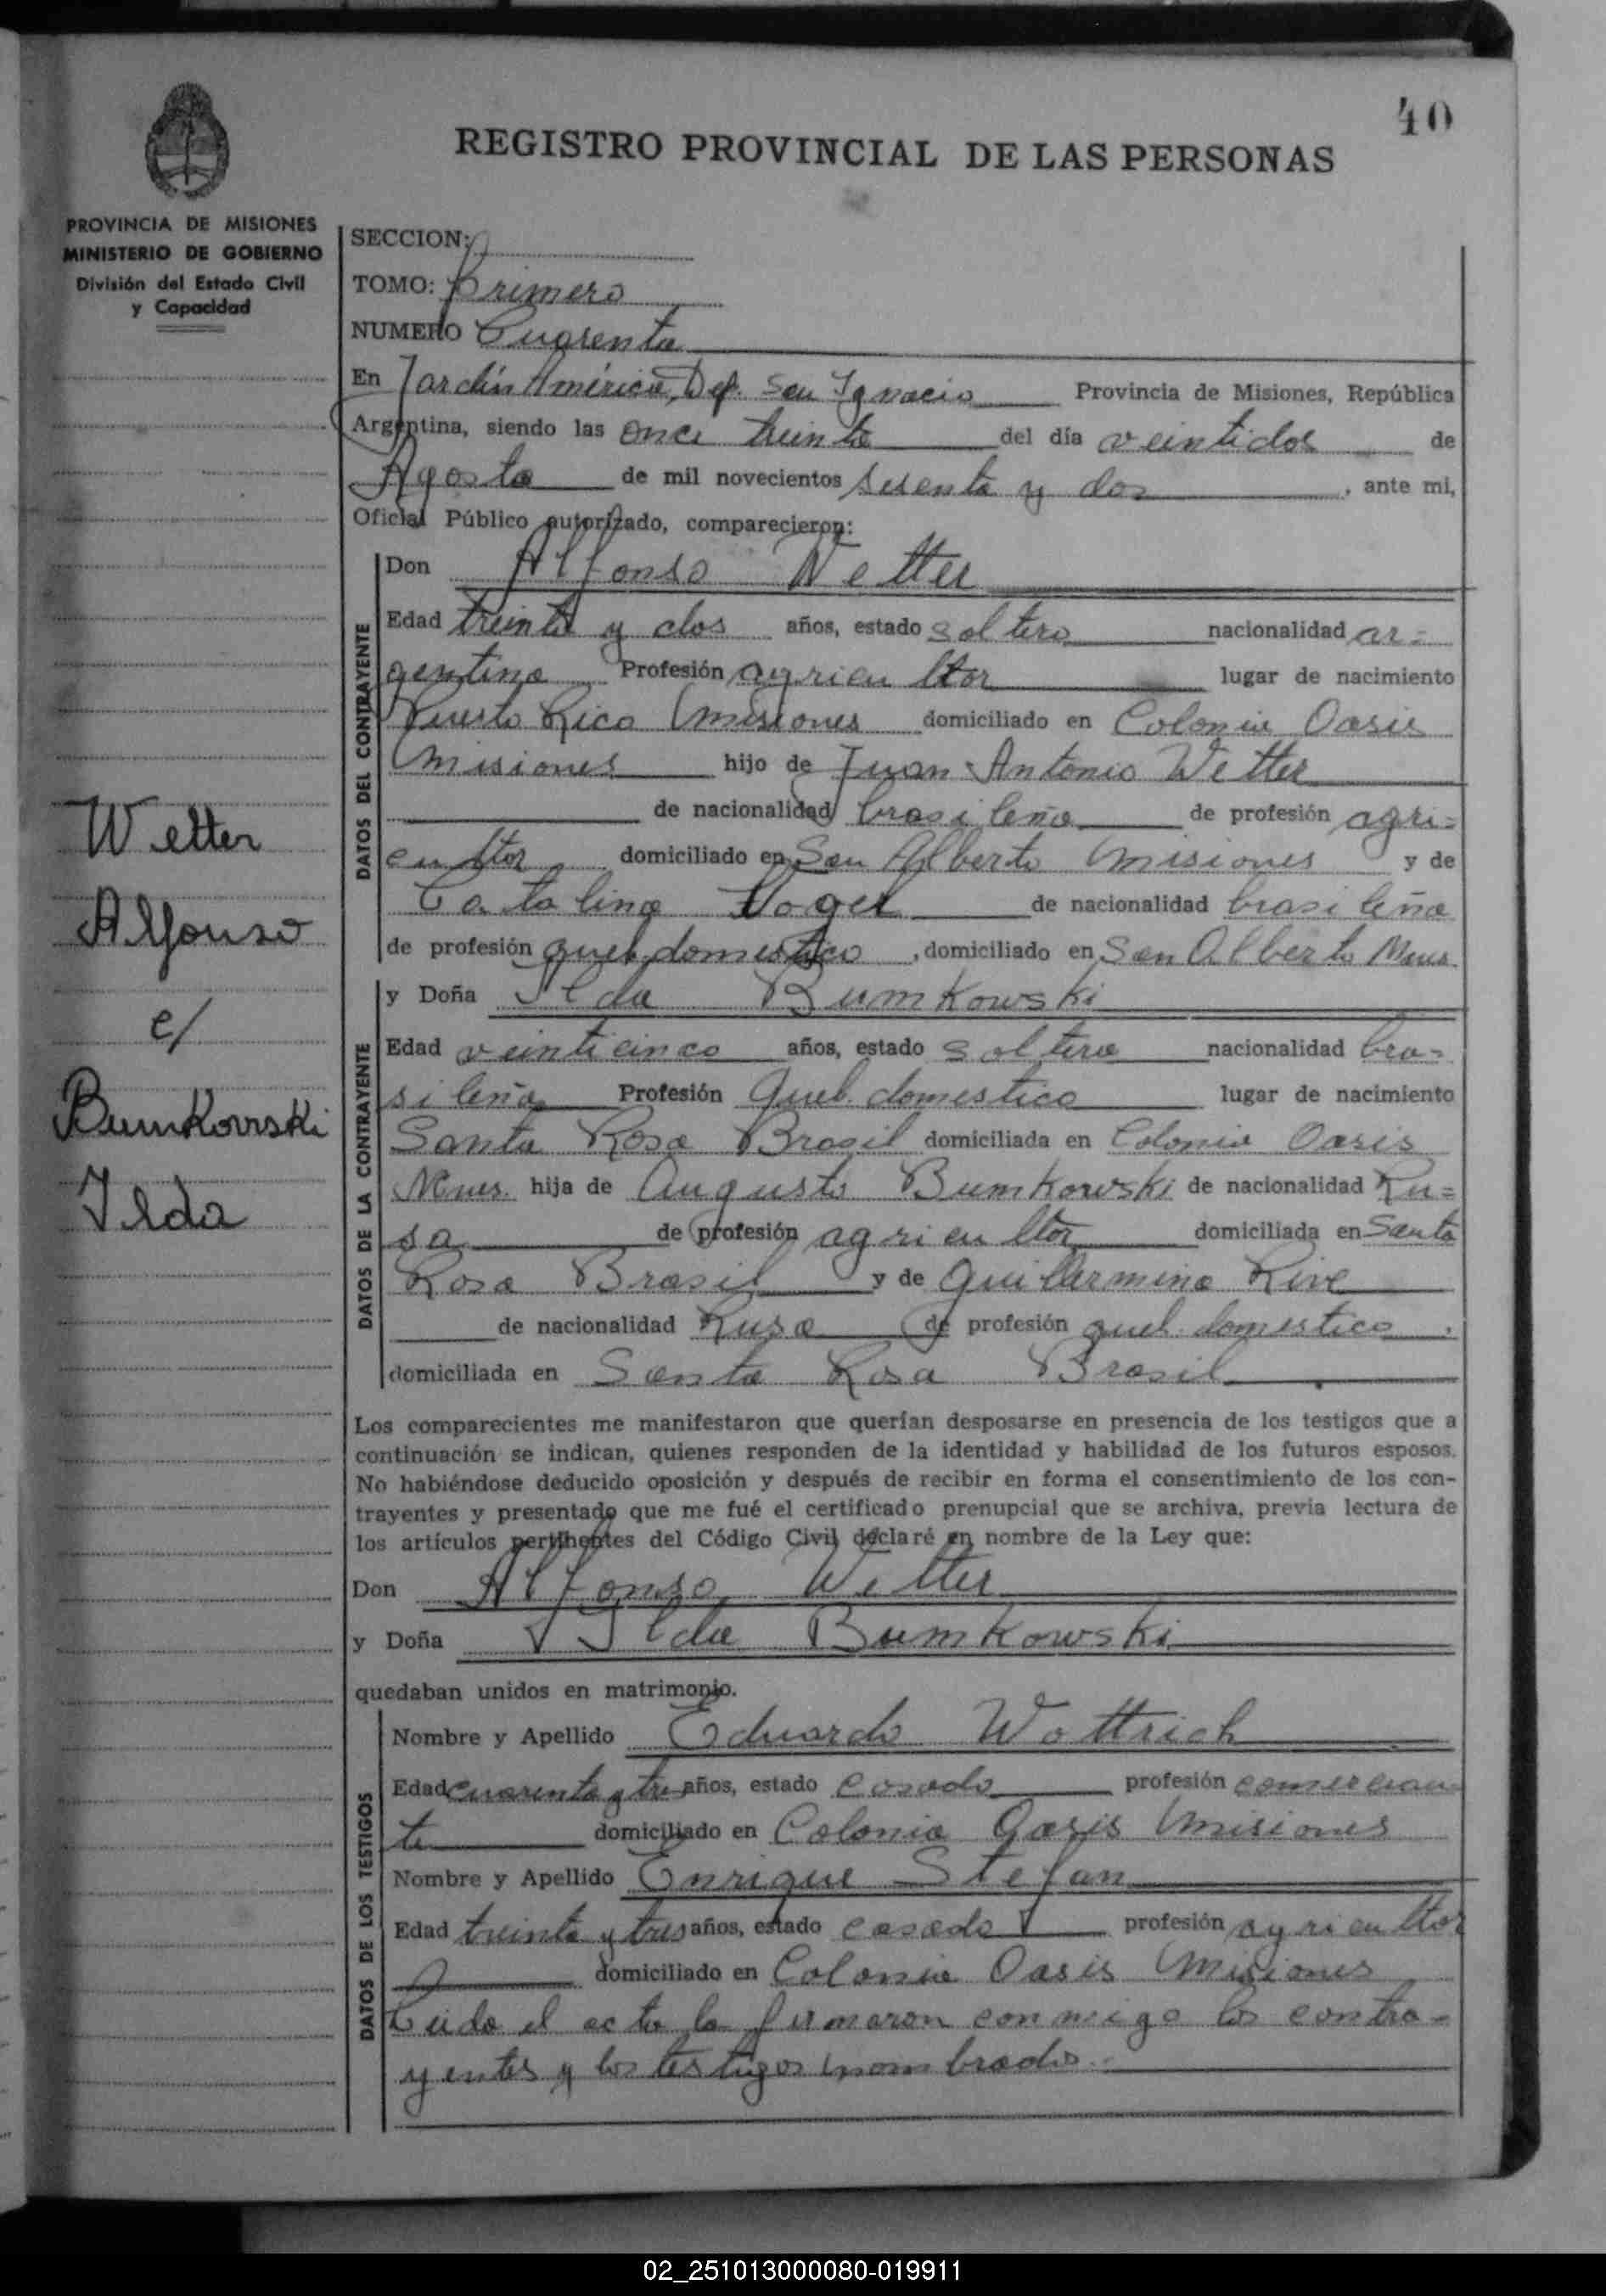 40
REGISTRO PROVINCIAL DE LAS PERSONAS
PROVINCIA DE MISIONES
MINISTERIO DE GOBIERNO
División del Estado Civil
y Capacidad
Welter
Alfonso
c/
Bumkowski
Ilda
SECCION:
TOMO: primero
NUMERO Cuarenta
En Jardín América, Dep. San Ignacio Provincia de Misiones, República
Argentina, siendo las once treinta del día veintidos de
Agosto de mil novecientos sesenta y dos, ante mi,
Oficial Público autorizado, comparecieron:
DATOS DEL CONTRAYENTE
Don Alfonso Welter
Edad treinta y dos años, estado soltero nacionalidad ar=
gentina Profesión agricultor lugar de nacimiento
Puerto Rico Misiones domiciliado en Colonia Oasis
Misiones hijo de Juan Antonio Welter
de nacionalidad brasileña de profesión agri=
cultor domiciliado en San Alberto Misiones y de
Catalina Vogel de nacionalidad brasileña
de profesión queh. domestico, domiciliado en San Alberto Mnes.
DATOS DE LA CONTRAYENTE
y Doña Ilda Bumkowski
Edad veinticinco años, estado soltera nacionalidad bra=
sileña Profesión Queh. domestico lugar de nacimiento
Santa Rosa Brasil domiciliada en Colonia Oasis
Mnes. hija de Augusto Bumkowski de nacionalidad Ru=
sa de profesión agricultor domiciliada en Santa
Rosa Brasil y de Guillermina Rive
de nacionalidad Rusa de profesión queh. domestico,
domiciliada en Santa Rosa Brasil
Los comparecientes me manifestaron que querían desposarse en presencia de los testigos que a
continuación se indican, quienes responden de la identidad y habilidad de los futuros esposos.
No habiéndose deducido oposición y después de recibir en forma el consentimiento de los con-
trayentes y presentado que me fué el certificado prenupcial que se archiva, previa lectura de
los artículos pertinentes del Código Civil declaré en nombre de la Ley que:
Don Alfonso Welter
y Doña Ilda Bumkowski
quedaban unidos en matrimonio.
DATOS DE LOS TESTIGOS
Nombre y Apellido Eduardo Wottrich
Edad cuarenta y tres años, estado casado profesión comercian=
te domiciliado en Colonia Oasis Misiones
Nombre y Apellido Enrique Stefan
Edad treinta y tres años, estado casado profesión agricultor
domiciliado en Colonia Oasis Misiones
Leida el acta la firmaron conmigo los contra=
yentes y los testigos nombrados.-
02_251013000080-019911